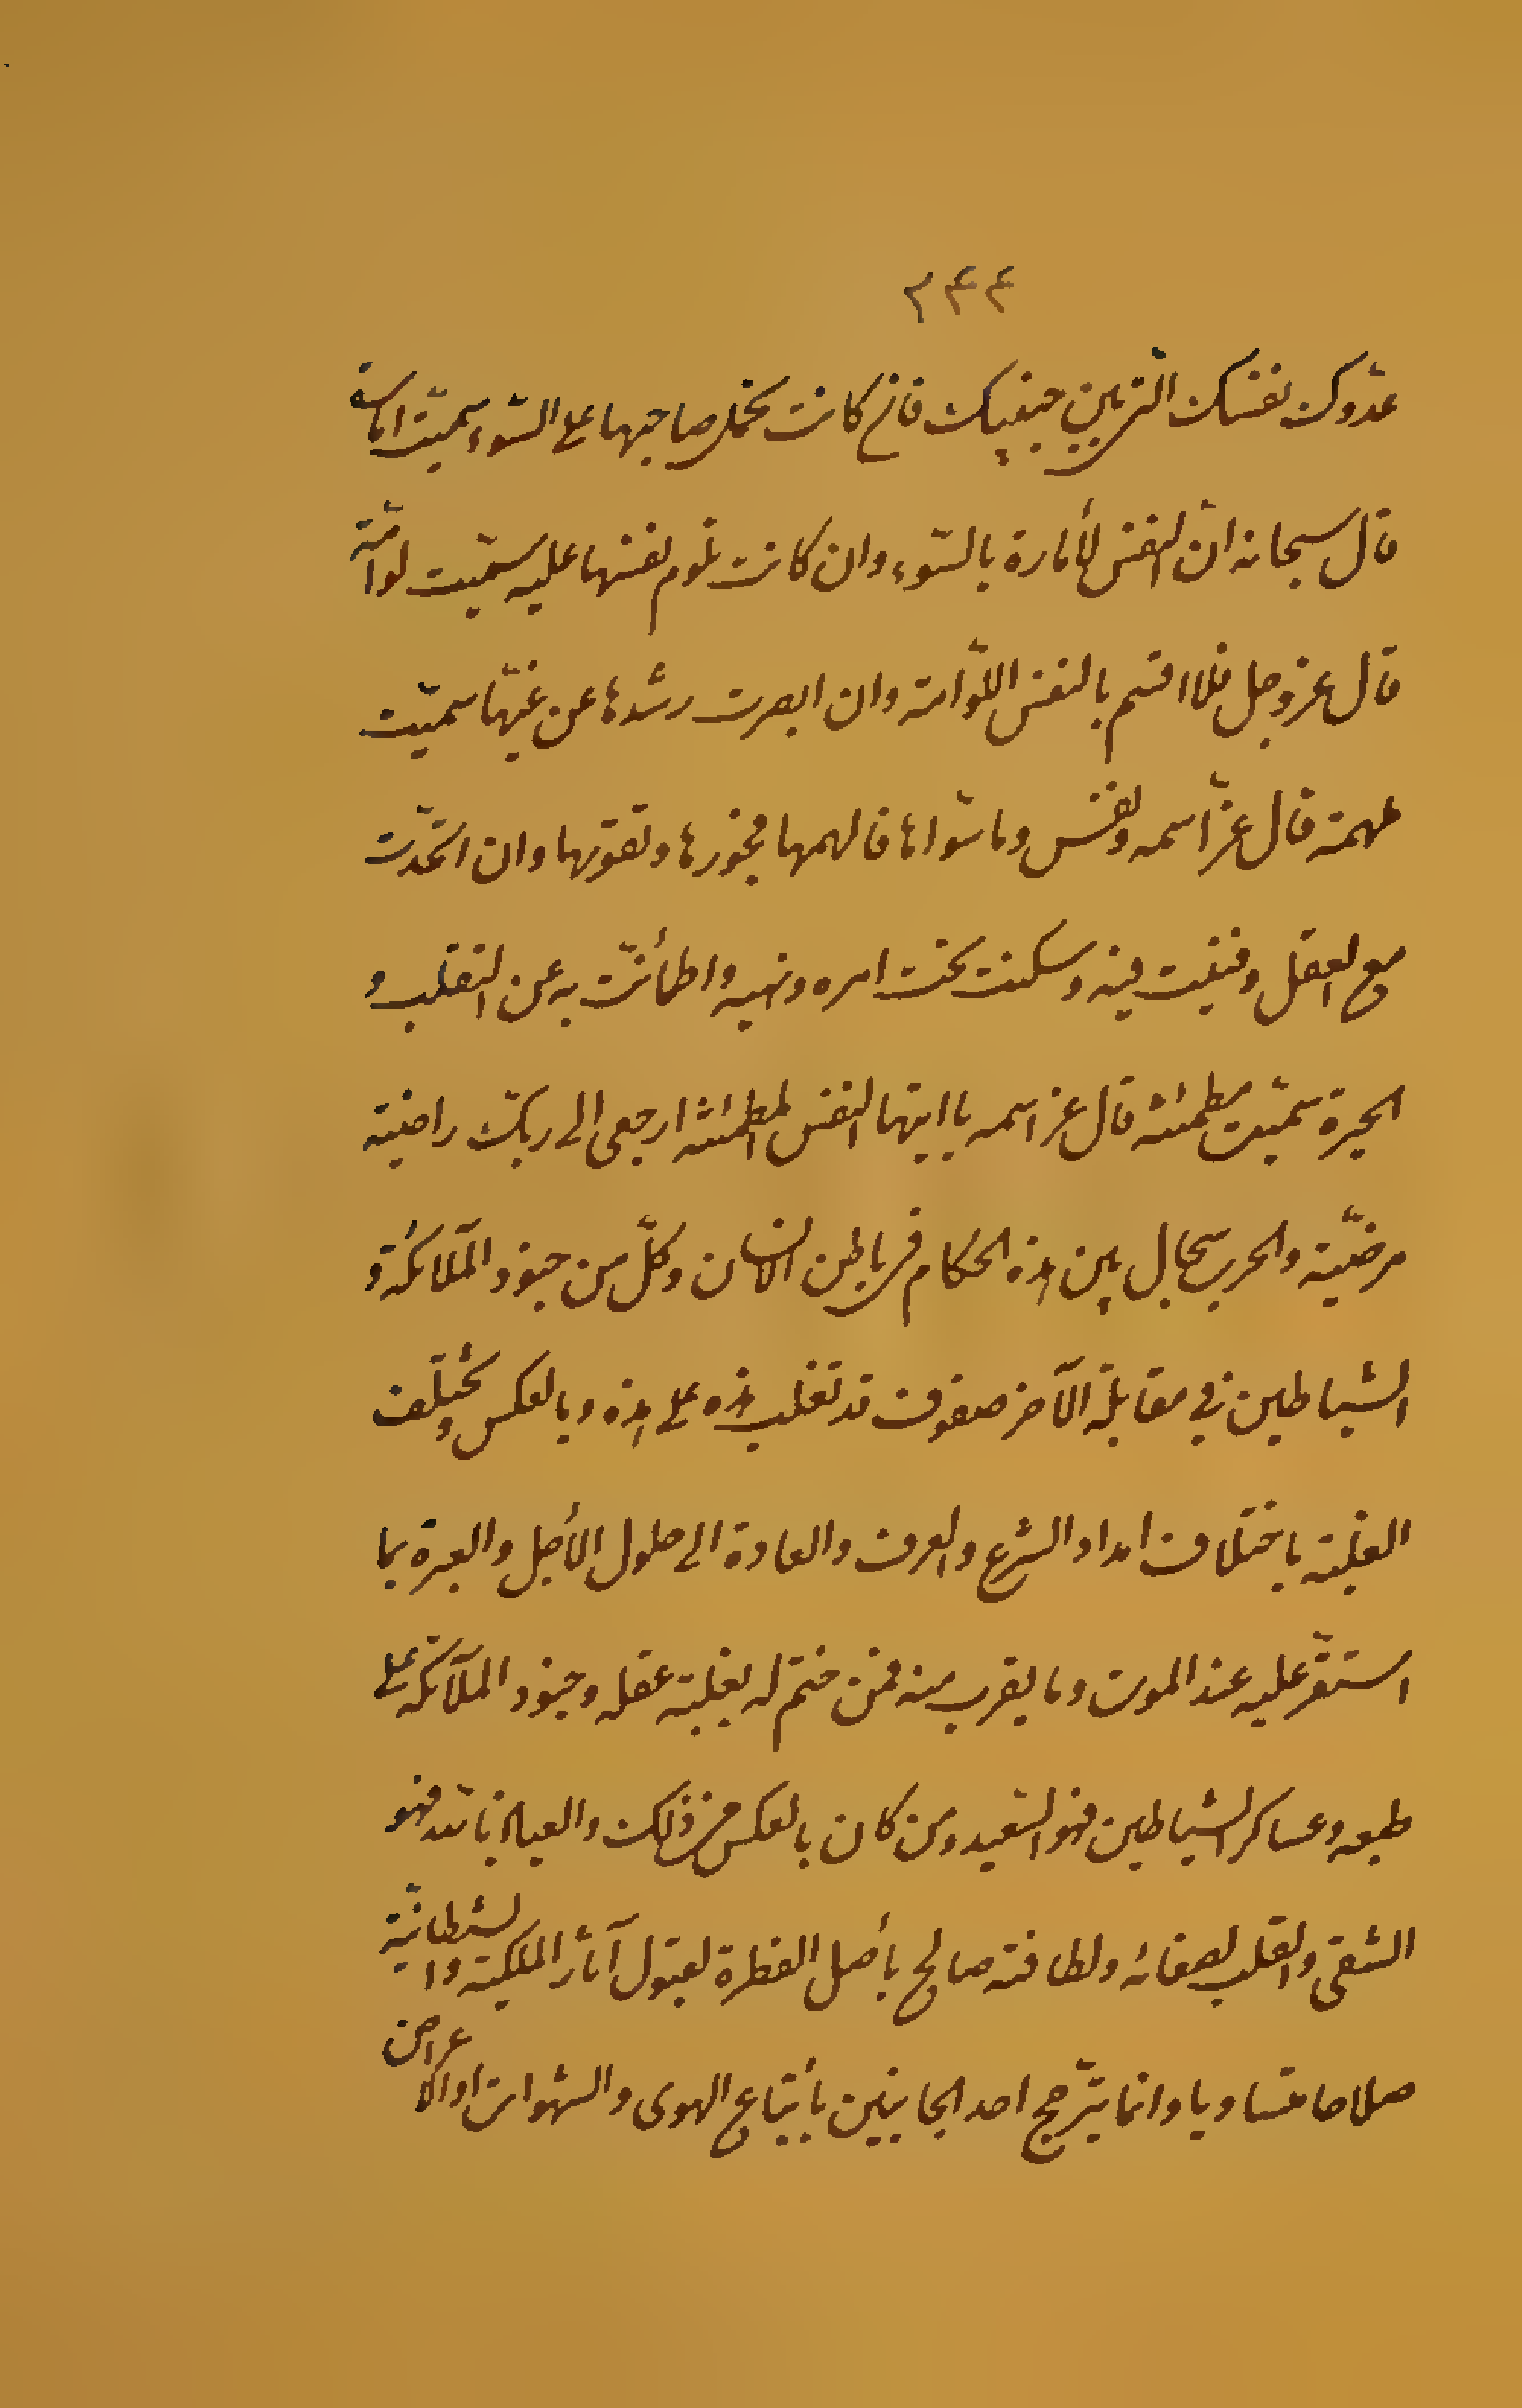 ۲۴۴
عدّوك نفسك الّتي بين جنبيك فان كانت تحمل صاحبها على السّوء سميّت امارة
قال سبحانه انّ النفس لأمارة بالسّوء وان كانت تلوم نفسها عليه سميّت لوامّة
قال عز وجل فلا اقسم بالنفس اللوّامة وان ابصرت رشدها عن غيّها سميّت
ملهمة قال عزّ اسمه ونفس وما سوّاها فالهمها فجورها وتقوٰيها وان اتحّدت
مع العقل وفنيت فيه وسكنت تحت امره ونهيه واطمأنّت به عن التقلب و
الحيرة سميّت مطمئنة قال عز اسمه يا ايتها النفس المطمئنة ارجعى الى ربك راضية
مرضيّة والحرب سجال بين هذه الحكام في باطن الانسان وكلّ من جنود الملائكة و
الشياطين في مقابلة الآخر صفوف قد تغلب هذه على هذه وبالعكس وتختلف
الغلبة باختلاف امداد الشرع والعرف والعادة الى حلول الأجل والعبرة بما
استقرّ عليه عند الموت وما يقرب منه فمن ختم له بغلبة عقله وجنود الملآئكة على
طبعه وعساكر الشياطين فهو السّعيد ومن كان بالعكس من ذلك والعياذ بالله فهو
الشقى والقلب لصفائه ولطافته صالح بأصل الفطرة لقبول آثار الملكية والشيطانيّة
صلاحا متساويا وانما يترّجح احد الجانبين بأتباع الهوى والشهوات او الاعراض